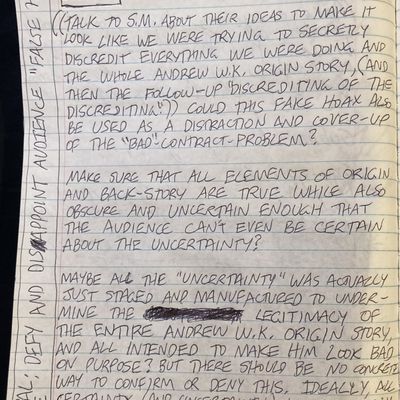 ((TALK TO S.M. ABOUT THEIR IDEAS TO MAKE IT
LOOK LIKE WE WERE TRYING TO SECRETLY
DISCREDIT EVERYTHING WE WERE DOING AND
THE WHOLE ANDREW W.K. ORIGIN STORY, (AND
THEN THE FOLLOW-UP "DISCREDITING OF THE
DISCREDITING".)) COULD THIS FAKE HOAX ALSO
BE USED AS A DISTRACTION AND COVER-UP
OF THE "BAD"-CONTRACT-PROBLEM?
MAKE SURE THAT ALL ELEMENTS OF ORIGIN
AND BACK-STORY ARE TRUE WHILE ALSO
OBSCURE AND UNCERTAIN ENOUGH THAT
THE AUDIENCE CAN'T EVEN BE CERTAIN
ABOUT THE UNCERTAINTY?
MAYBE ALL THE "UNCERTAINTY" WAS ACTUALLY
JUST STAGED AND MANUFACTURED TO UNDER-
MINE THE LEGITIMACY OF
THE ENTIRE ANDREW W.K. ORIGIN STORY,
AND ALL INTENDED TO MAKE HIM LOOK BAD
ON PURPOSE? BUT THERE SHOULD BE NO CONCRETE
WAY TO CONFIRM OR DENY THIS. IDEALLY, ALL
CERTAINTY (AND UNCERTAINTY)
DEFY AND DISAPPOINT AUDIENCE "FALSE